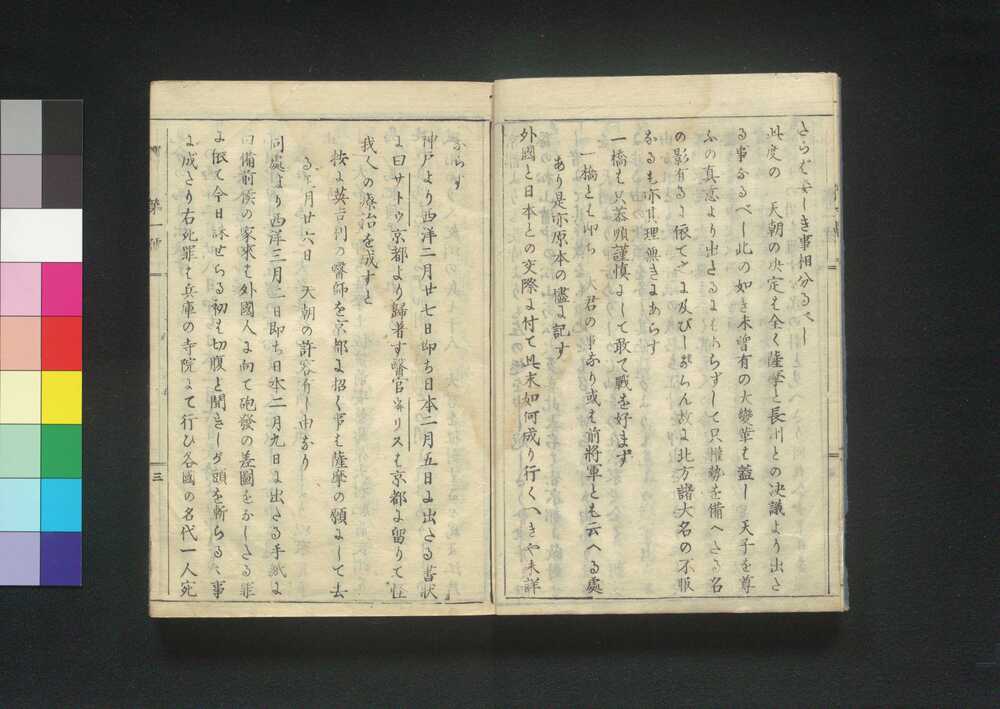 さらばやしき事相分るべし
此度の 天朝の决定も全く薩摩と長州との决議より出さ
る事なるべし此の如き未曾有の大變革も蓋し 天子を尊
ふの真意より出さるにもあらずして只権勢を備へさる名
の影有るに依てこに及びしならん故に北方諸大名の不服
なるも亦其理無きにあらす
一橋も只恭順謹慎にして敢て戰を好まず
橋とも即ち 大君の事なり或も前將軍とも云へる處
あり是亦原本の儘に記す
外國と日本との交際に付て此末如何成り行くへきや未詳
ならず
神戸より西洋二月廿七日即ち日本二月五日に出さる書状
に曰サトウ京都より歸着す醫官ウリリスも京都に留りて怪
我人の療治を成すと
按に英吉利の醫師を京都に招く事も薩摩の願にして去
る正月廿六日 天朝の許容有し由なり
同處より西洋三月二日即ち日本二月九日に出さる手紙に
曰備前侯の家来も外國人に向て砲發の差圖をなしさる罪
に依て今日誅せらる初も切腹と聞きしが頭を斬らるゝ事
に成さり右死罪も兵庫の寺院にて行ひ各國の名代一人宛
第一種
三